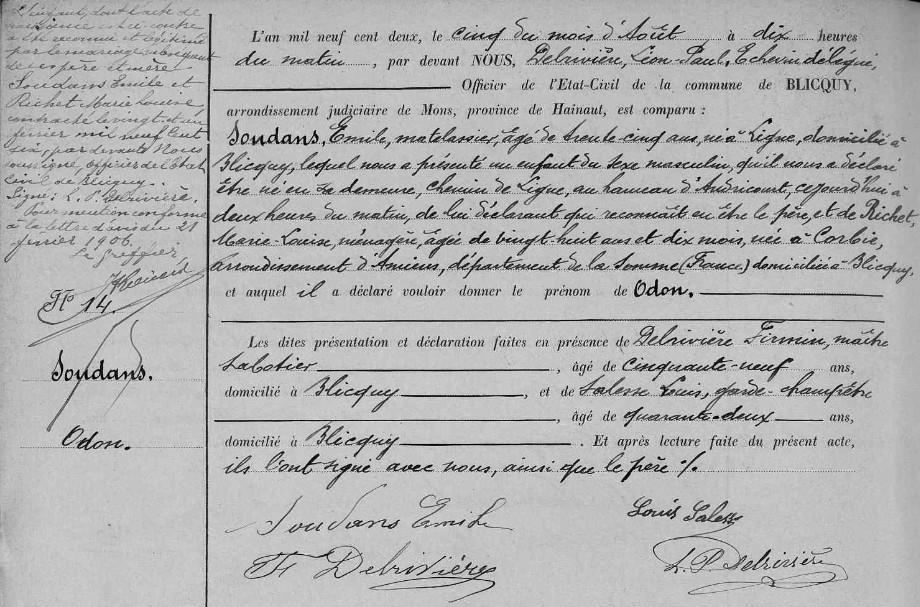 L'enfant, dont l'acte de
naissance est ci-contre
a été reconnu et légitimé
par le mariage subséquent
de ses père et mère
Soudans Emile et
Richet Marie Louise
contracté le vingt et un
février mil neuf cent
six, par devant Nous
soussigné, officier de l'Etat
Civil de Blicquy.
Signé: L. P. Delrivière.
Pour mention conforme
à la lettre d'avis du 21
février 1906.
Le greffier
N° 14.
Soudans.
Odon.
L'an mil neuf cent deux, le cinq du mois d'Août à dix heures
du matin, par devant NOUS, Delrivière, Léon-Paul, Echevin délégué,
Officier de l'Etat-Civil de la commune de BLICQUY,
arrondissement judiciaire de Mons, province de Hainaut, est comparu :
Soudans, Emile, matelassier, âgé de trente-cinq ans, né à Ligne, domicilié à
Blicquy, lequel nous a présenté un enfant du sexe masculin, qu'il nous a déclaré
être né en sa demeure, chemin de Ligne, au hameau d'Andricourt, cejourd'hui à
deux heures du matin, de lui déclarant qui reconnaît en être le père, et de Richet,
Marie-Louise, ménagère, âgée de vingt-huit ans et dix mois, née à Corbie,
arrondissement d'Amiens, département de la Somme (France) domiciliée à Blicquy,
et auquel il a déclaré vouloir donner le prénom de Odon.
Les dites présentation et déclaration faites en présence de Delrivière Firmin, maître
sabotier, âgé de cinquante-neuf ans,
domicilié à Blicquy, et de Salesse Louis, garde-champêtre
, âgé de quarante-deux ans,
domicilié à Blicquy. Et après lecture faite du présent acte,
ils l'ont signé avec nous, ainsi que le père ./.
Soudans Emile
Louis Salesse
F Delrivière
L. P. Delrivière